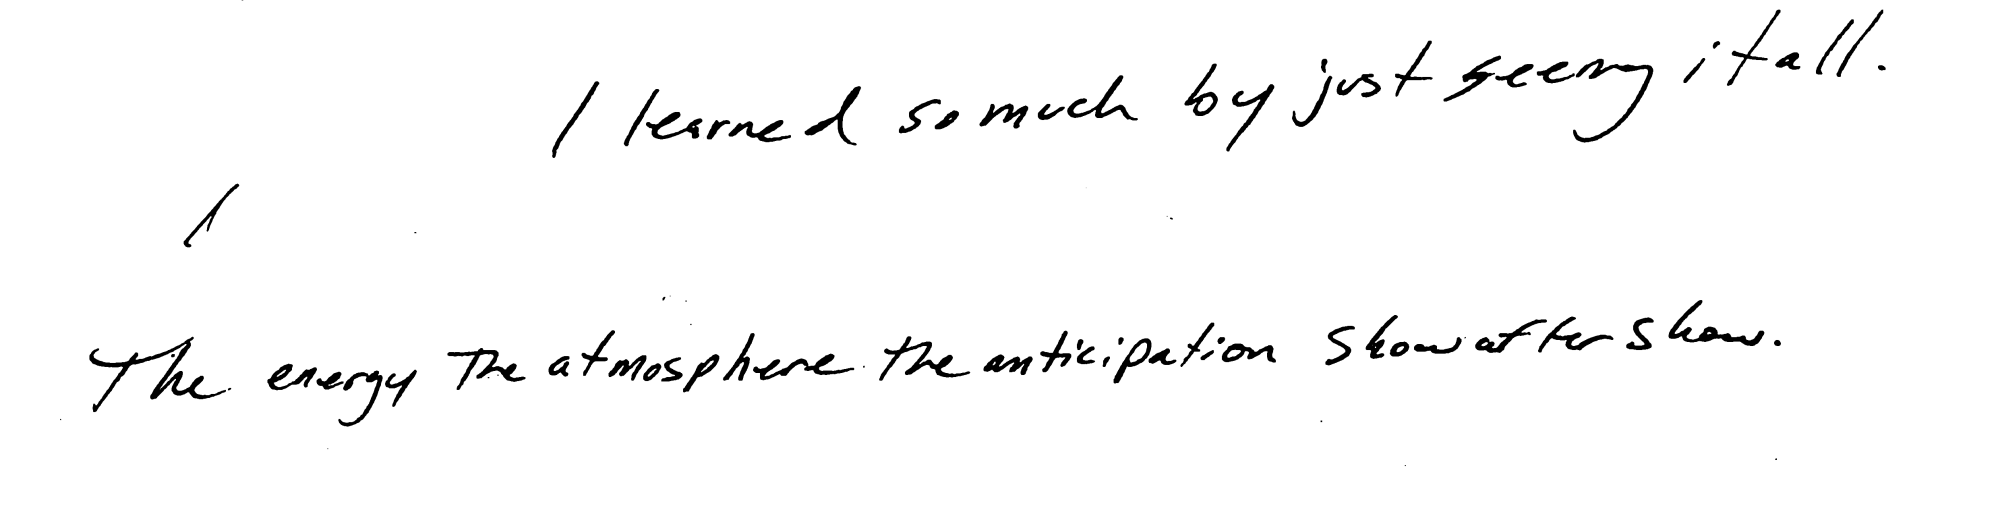 I learned so much by just seeing it all.
The energy The atmosphere the anticipation show after show.